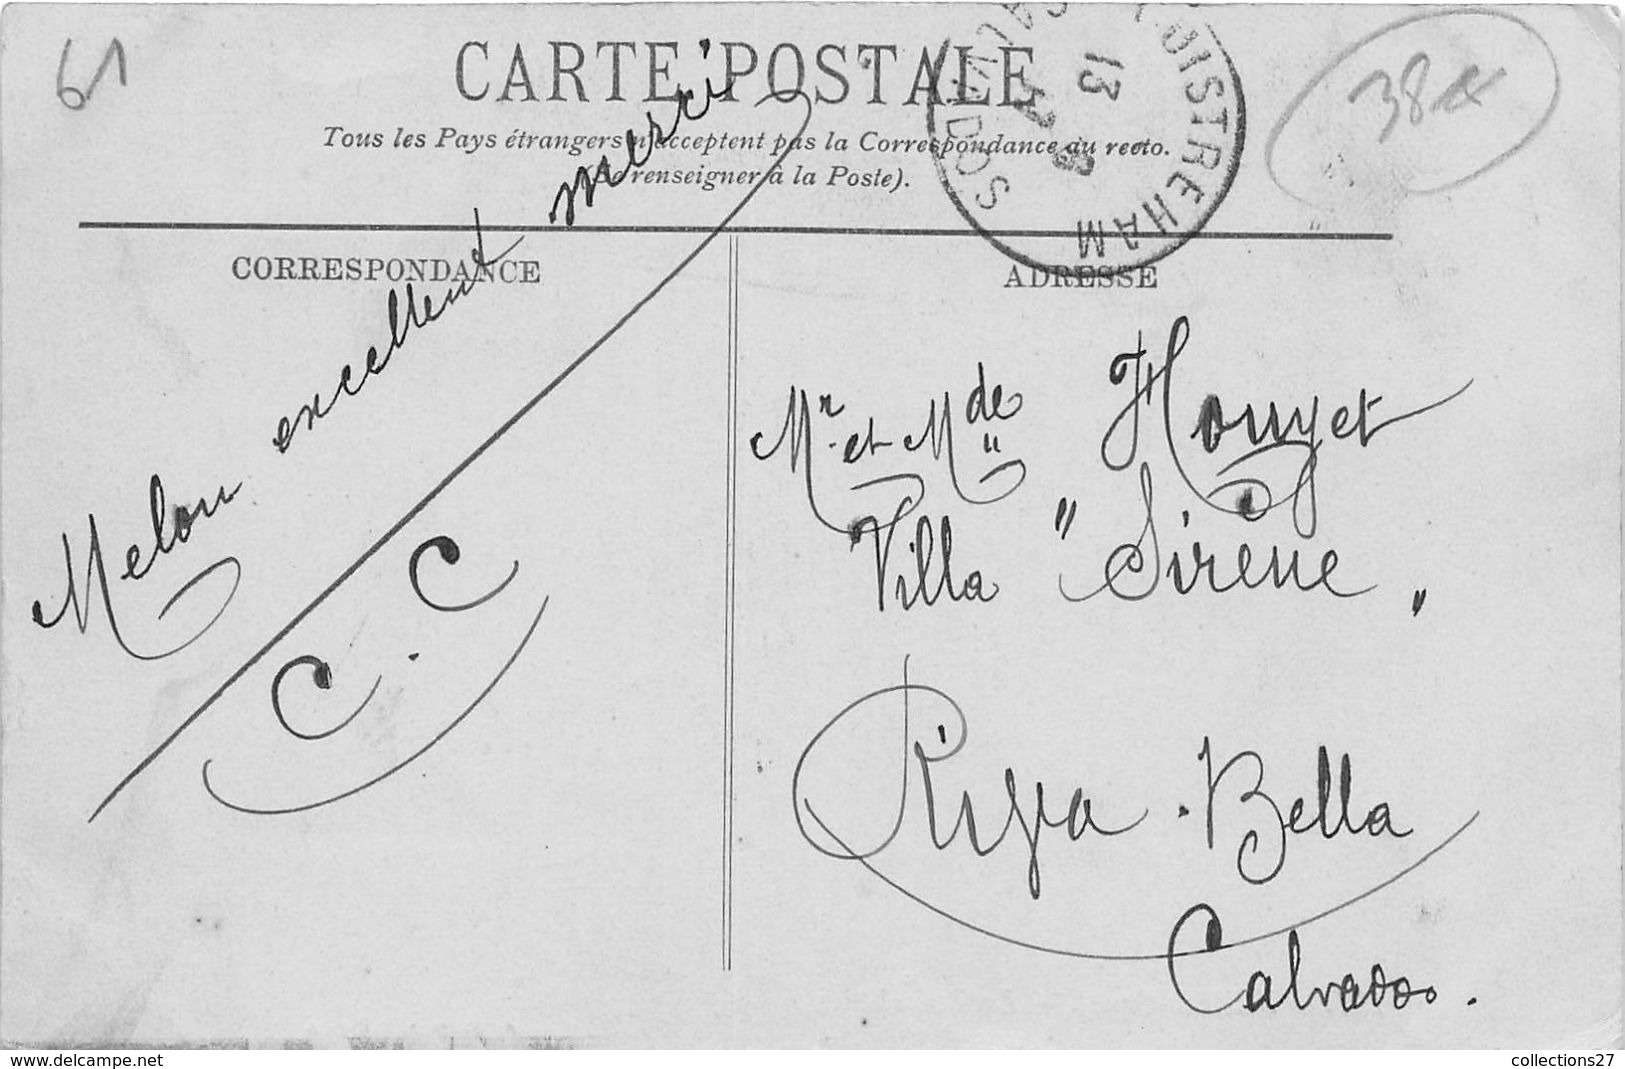 61
CARTE POSTALE
38
Tous les Pays étrangers n'acceptent pas la Correspondance au recto.
(Se renseigner à la Poste).
OUISTREHAM
13
CALVADOS
CORRESPONDANCE
Melon excellent merci
C. C
ADRESSE
Mr et Mde Houyet
Villa "Sirène"
Riva. Bella
Calvados.
www.delcampe.net
collections27